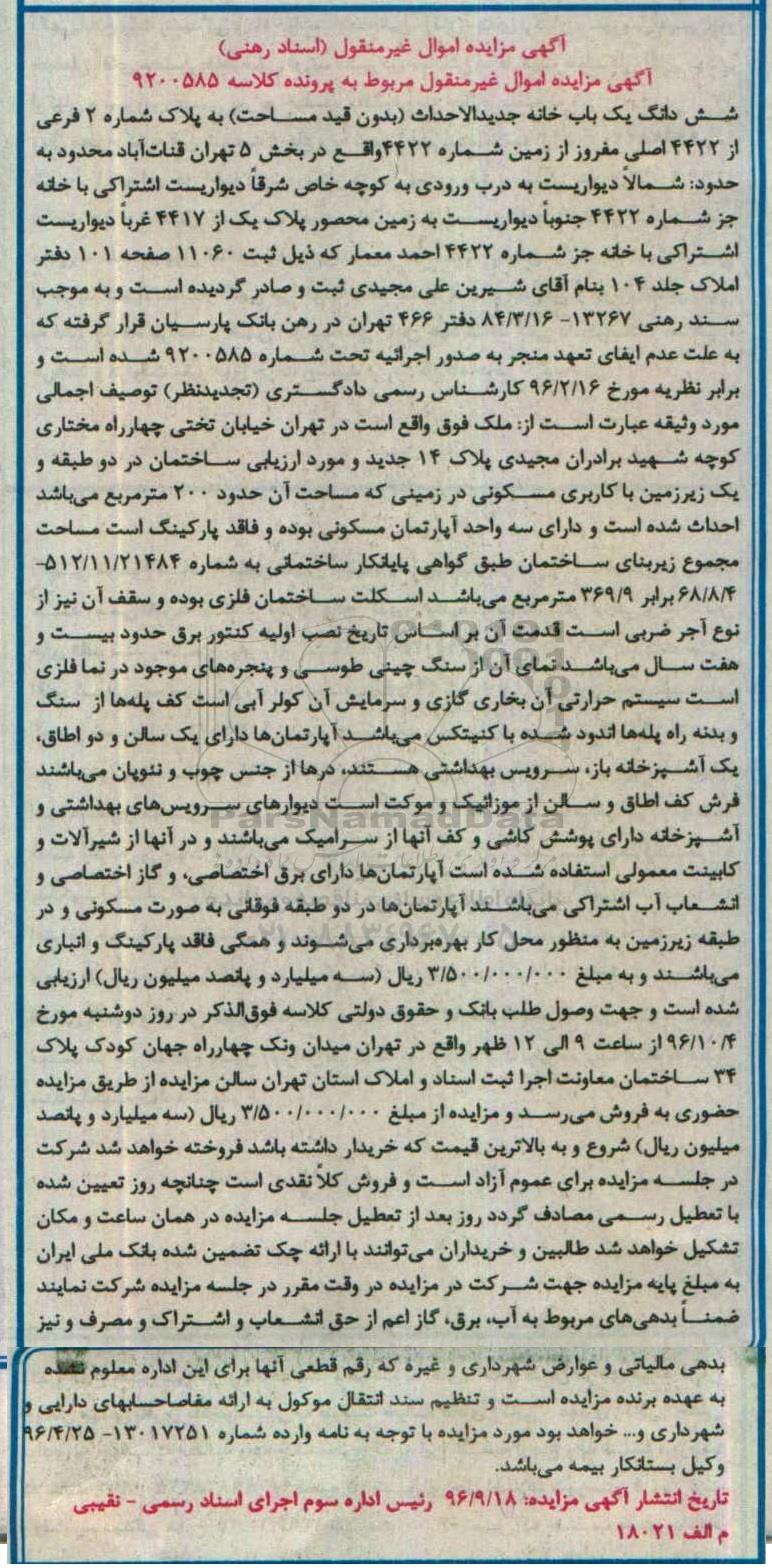 آگهی مزایده اموال غیرمنقول (اسناد رهنی)
آگهی مزایده اموال غیرمنقول مربوط به پرونده کلاسه ۹۲۰۰۵۸۵
شش دانگ یک باب خانه جدیدالاحداث (بدون قید مساحت) به پلاک شماره ۲ فرعی
از ۴۴۲۲ اصلی مفروز از زمین شماره ۴۴۲۲واقع در بخش ۵ تهران قنات‌آباد محدود به
حدود: شمالاً دیواریست به درب ورودی به کوچه خاص شرقاً دیواریست اشتراکی با خانه
جز شماره ۴۴۲۲ جنوباً دیواریست به زمین محصور پلاک یک از ۴۴۱۷ غرباً دیواریست
اشتراکی با خانه جز شماره ۴۴۲۲ احمد معمار که ذیل ثبت ۱۱۰۶۰ صفحه ۱۰۱ دفتر
املاک جلد ۱۰۴ بنام آقای شیرین علی مجیدی ثبت و صادر گردیده است و به موجب
سند رهنی ۱۳۲۶۷- ۸۴/۳/۱۶ دفتر ۴۶۶ تهران در رهن بانک پارسیان قرار گرفته که
به علت عدم ایفای تعهد منجر به صدور اجرائیه تحت شماره ۹۲۰۰۵۸۵ شده است و
برابر نظریه مورخ ۹۶/۲/۱۶ کارشناس رسمی دادگستری (تجدیدنظر) توصیف اجمالی
مورد وثیقه عبارت است از: ملک فوق واقع است در تهران خیابان تختی چهارراه مختاری
کوچه شهید برادران مجیدی پلاک ۱۴ جدید و مورد ارزیابی ساختمان در دو طبقه و
یک زیرزمین با کاربری مسکونی در زمینی که مساحت آن حدود ۲۰۰ مترمربع می‌باشد
احداث شده است و دارای سه واحد آپارتمان مسکونی بوده و فاقد پارکینگ است مساحت
مجموع زیربنای ساختمان طبق گواهی پایانکار ساختمانی به شماره ۵۱۲/۱۱/۲۱۴۸۴-
۶۸/۸/۴ برابر ۳۶۹/۹ مترمربع می‌باشد اسکلت ساختمان فلزی بوده و سقف آن نیز از
نوع آجر ضربی است قدمت آن بر اساس تاریخ نصب اولیه کنتور برق حدود بیست و
هفت سال می‌باشد نمای آن از سنگ چینی طوسی و پنجره‌های موجود در نما فلزی
است سیستم حرارتی آن بخاری گازی و سرمایش آن کولر آبی است کف پله‌ها از سنگ
و بدنه راه پله‌ها اندود شده با کنیتکس می‌باشد آپارتمان‌ها دارای یک سالن و دو اطاق،
یک آشپزخانه باز، سرویس بهداشتی هستند، درها از جنس چوب و نئوپان می‌باشند
فرش کف اطاق و سالن از موزائیک و موکت است دیوارهای سرویس‌های بهداشتی و
آشپزخانه دارای پوشش کاشی و کف آنها از سرامیک می‌باشند و در آنها از شیرآلات و
کابینت معمولی استفاده شده است آپارتمان‌ها دارای برق اختصاصی، و گاز اختصاصی و
انشعاب آب اشتراکی می‌باشند آپارتمان‌ها در دو طبقه فوقانی به صورت مسکونی و در
طبقه زیرزمین به منظور محل کار بهره‌برداری می‌شوند و همگی فاقد پارکینگ و انباری
می‌باشند و به مبلغ ۳/۵۰۰/۰۰۰/۰۰۰ ریال (سه میلیارد و پانصد میلیون ریال) ارزیابی
شده است و جهت وصول طلب بانک و حقوق دولتی کلاسه فوق‌الذکر در روز دوشنبه مورخ
۹۶/۱۰/۴ از ساعت ۹ الی ۱۲ ظهر واقع در تهران میدان ونک چهارراه جهان کودک پلاک
۳۴ ساختمان معاونت اجرا ثبت اسناد و املاک استان تهران سالن مزایده از طریق مزایده
حضوری به فروش می‌رسد و مزایده از مبلغ ۳/۵۰۰/۰۰۰/۰۰۰ ریال (سه میلیارد و پانصد
میلیون ریال) شروع و به بالاترین قیمت که خریدار داشته باشد فروخته خواهد شد شرکت
در جلسه مزایده برای عموم آزاد است و فروش کلاً نقدی است چنانچه روز تعیین شده
با تعطیل رسمی مصادف گردد روز بعد از تعطیل جلسه مزایده در همان ساعت و مکان
تشکیل خواهد شد طالبین و خریداران می‌توانند با ارائه چک تضمین شده بانک ملی ایران
به مبلغ پایه مزایده جهت شرکت در مزایده در وقت مقرر در جلسه مزایده شرکت نمایند
ضمناً بدهی‌های مربوط به آب، برق، گاز اعم از حق انشعاب و اشتراک و مصرف و نیز
بدهی مالیاتی و عوارض شهرداری و غیره که رقم قطعی آنها برای این اداره معلوم نشده
به عهده برنده مزایده است و تنظیم سند انتقال موکول به ارائه مفاصاحسابهای دارایی و
شهرداری و... خواهد بود مورد مزایده با توجه به نامه وارده شماره ۱۳۰۱۷۲۵۱- ۹۶/۴/۲۵
وکیل بستانکار بیمه می‌باشد.
تاریخ انتشار آگهی مزایده: ۹۶/۹/۱۸ رئیس اداره سوم اجرای اسناد رسمی - نقیبی
م الف ۱۸۰۲۱
ParsNamadData